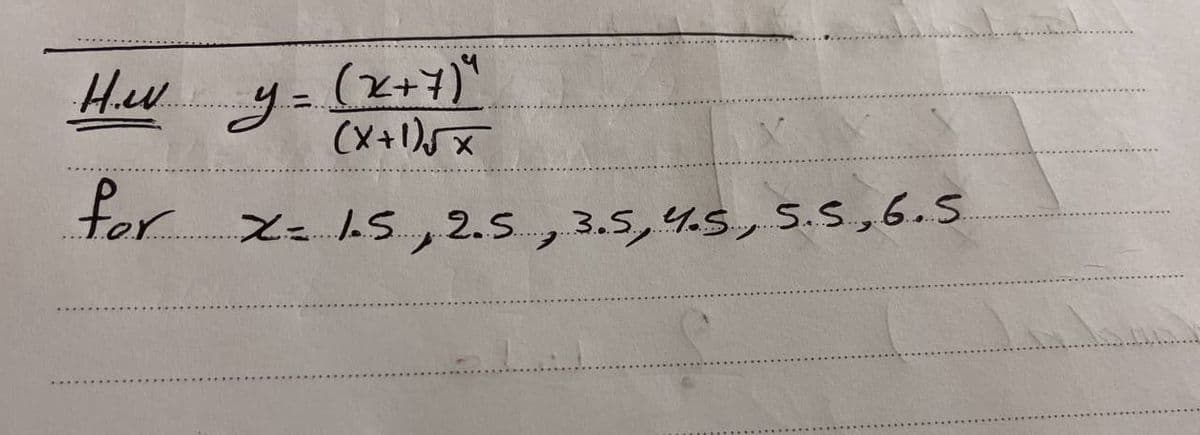 H.W y = (x+7)⁴ / (x+1)√x
for x = 1.5, 2.5, 3.5, 4.5, 5.5, 6.5